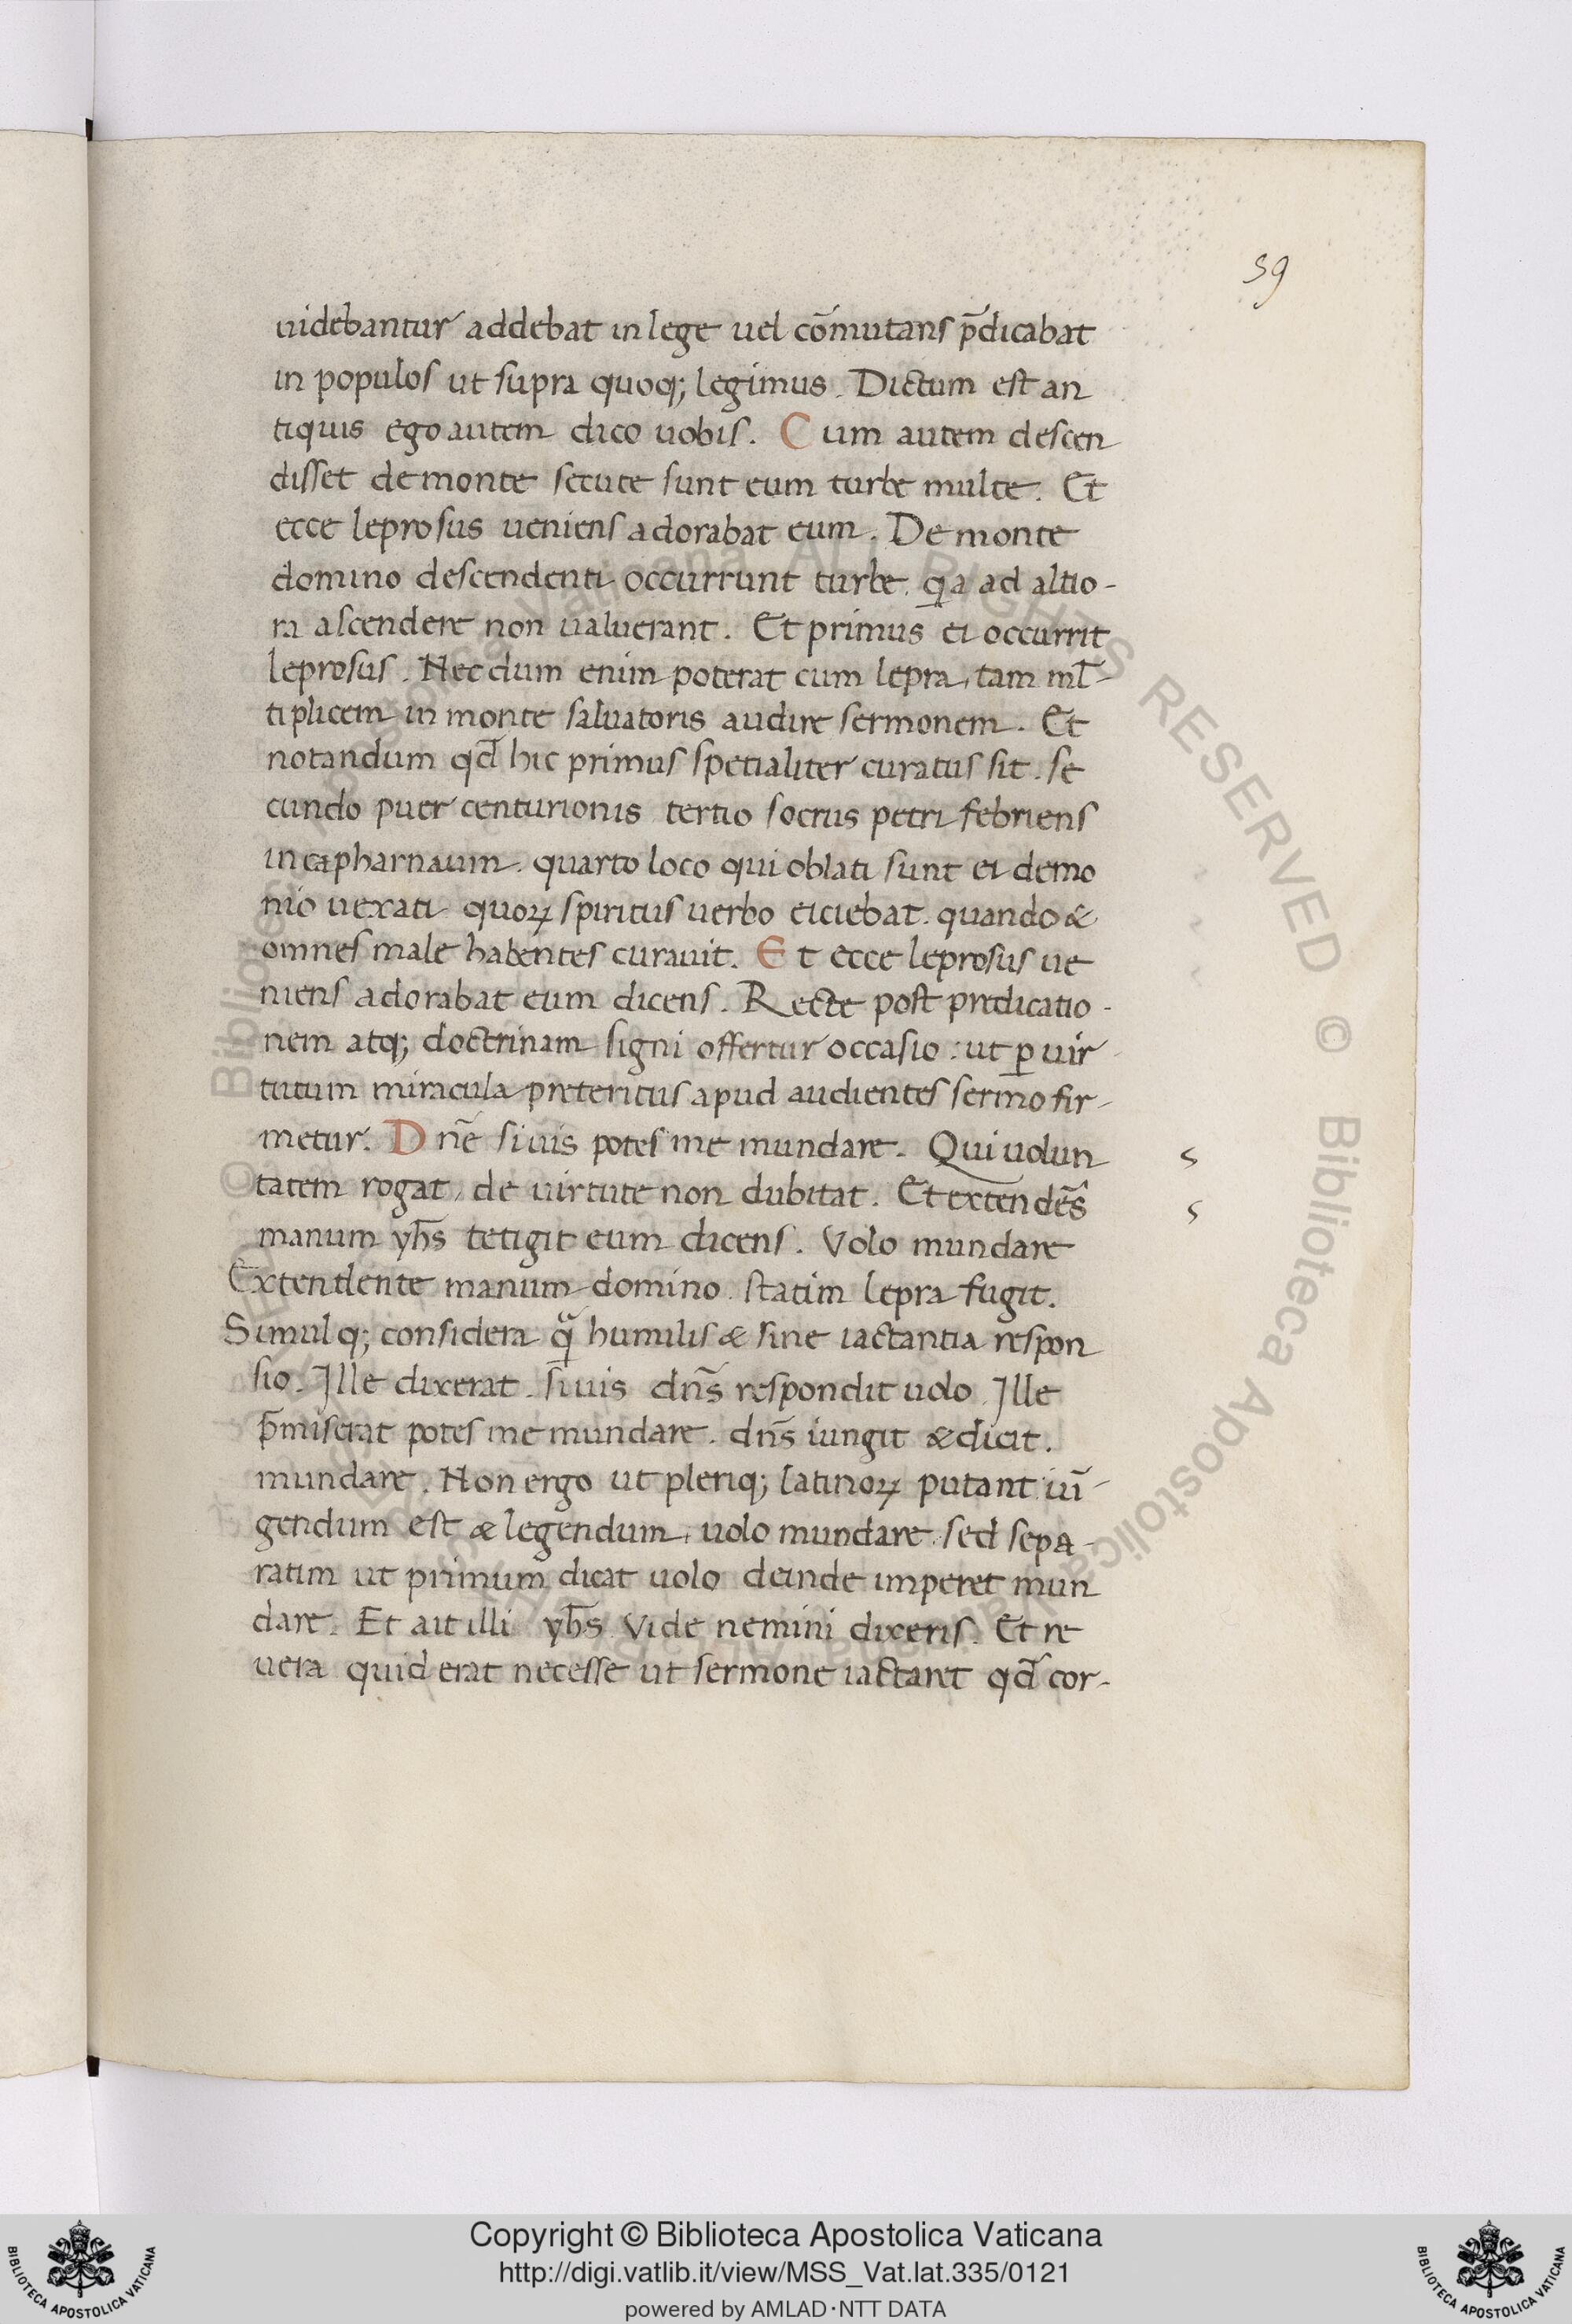 59
uidebantur addebat in lege uel cōmutans p̄dicabat
in populos ut supra quoq; legimus. Dictum est an
tiquis ego autem dico uobis. Cum autem descen
disset de monte secute sunt eum turbe multe. Et
ecce leprosus ueniens adorabat eum. De monte
domino descendenti occurrunt turbe. qa ad altio-
ra ascendere non ualuerant. Et primus ei occurrit
leprosus. Nec dum enim poterat cum lepra, tam ml̄-
tiplicem in monte saluatoris audire sermonem. Et
notandum qd̄ hic primus spetialiter curatus sit. se
cundo puer centurionis tertio socrus petri febriens
in capharnaum. quarto loco qui oblati sunt ei demo
nio uexati quoꝝ spiritus uerbo eiciebat. quando &
omnes male habentes curauit. Et ecce leprosus ue
niens adorabat eum dicens. Recte post predicatio-
nem atq; doctrinam signi offertur occasio: ut ꝑ uir-
tutum miracula preteritus apud audientes sermo fir-
metur. Dn̄e si uis potes me mundare. Qui uolun
tatem rogat, de uirtute non dubitat. Et extendēs
manum yh̄s tetigit eum dicens. Volo mundare
Extendente manum domino. statim lepra fugit.
Simul q; considera qͣ humilis & sine iactantia respon
sio. Ille dixerat. si uis dn̄s respondit uolo. Ille
p̄miserat potes me mundare. dn̄s iungit & dicit.
mundare. Non ergo ut pleriq; latinoꝝ putant iū-
gendum est & legendum, uolo mundare. sed sepa-
ratim ut primum dicat uolo deinde imperet mun
dare. Et ait illi yh̄s Vide nemini dixeris. Et re
uera quid erat necesse ut sermone iactaret qd̄ cor-
© Biblioteca Apostolica Vaticana. ALL RIGHTS RESERVED © Biblioteca Apostolica Vaticana
BIBLIOTECA APOSTOLICA VATICANA
Copyright © Biblioteca Apostolica Vaticana
http://digi.vatlib.it/view/MSS_Vat.lat.335/0121
powered by AMLAD·NTT DATA
BIBLIOTECA APOSTOLICA VATICANA